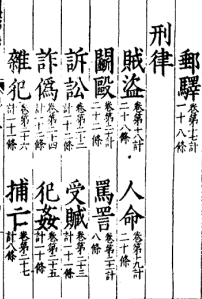 郵驛 卷第十七計一十八條
刑律
賊盜 卷第十八計二十八條 人命 卷第十九計二十條
鬬毆 卷第二十計二十二條 罵詈 卷第二十一計八條
訴訟 卷第二十二計一十二條 受贓 卷第二十三計一十一條
詐僞 卷第二十四計一十二條 犯姦 卷第二十五計一十條
雜犯 卷第二十六計一十一條 捕亡 卷第二十七計八條